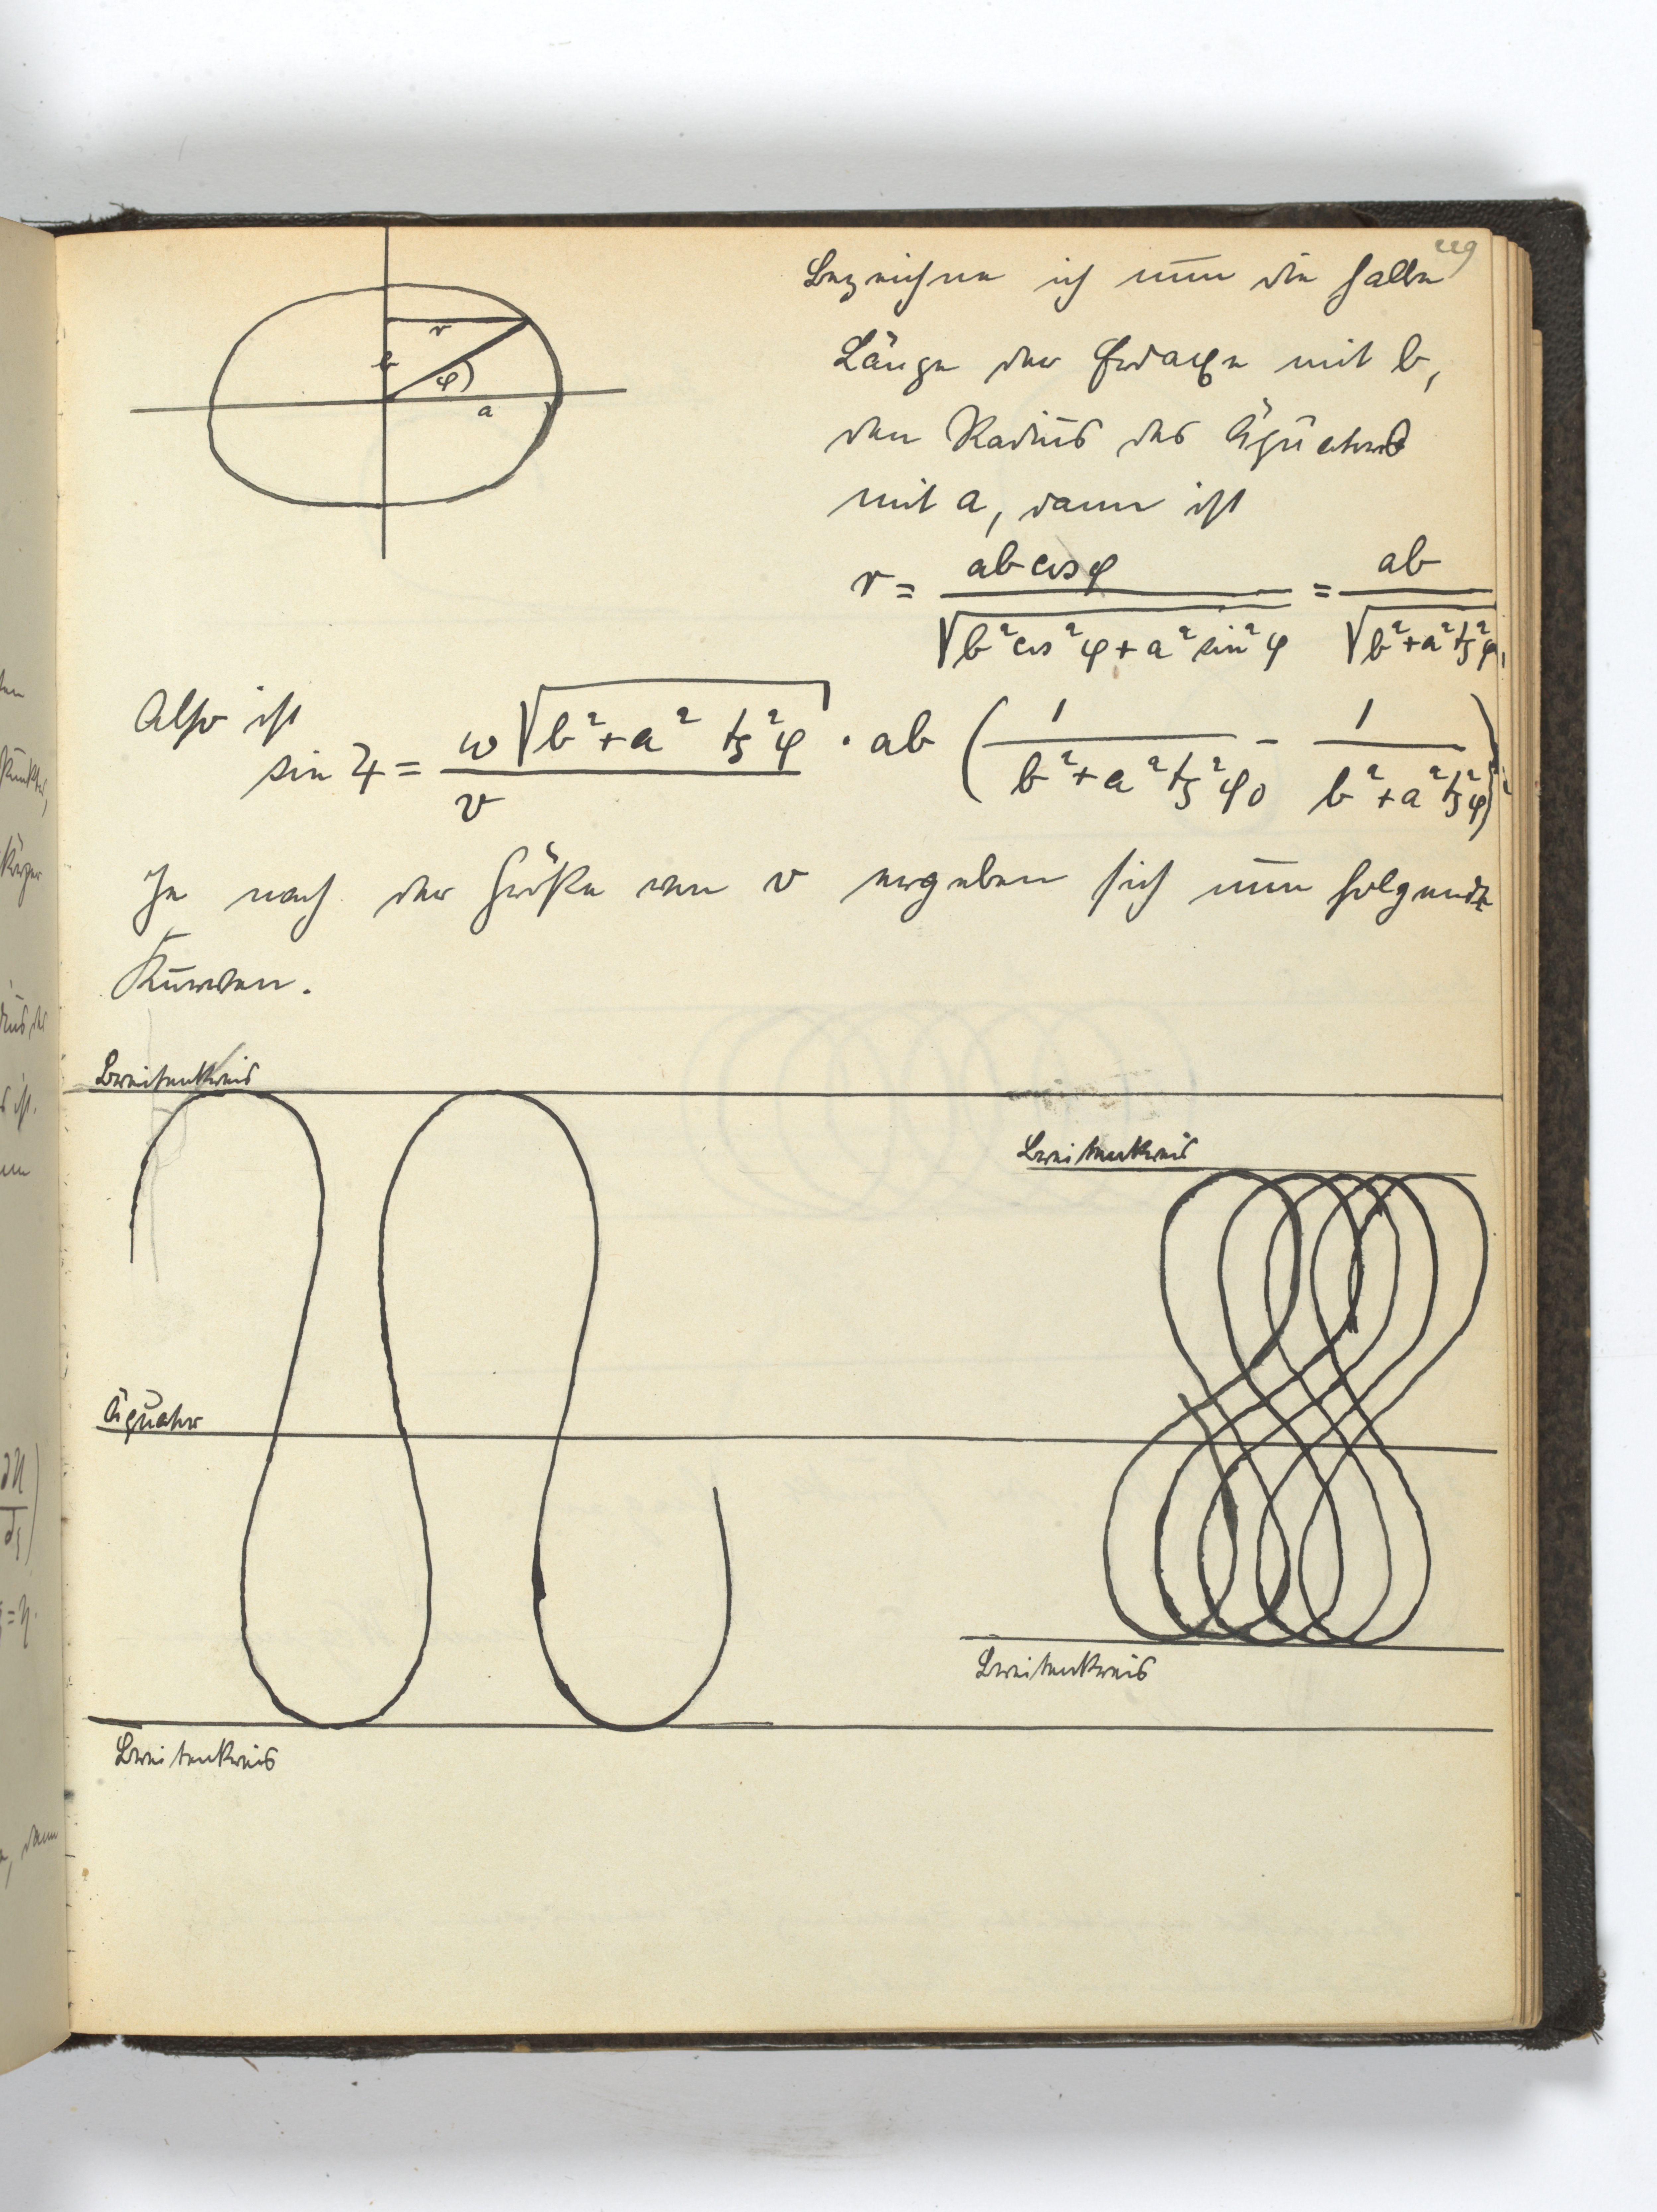 119
Bezeichne ich nun die halbe
Länge der Erdaxe mit b,
den Radius des Äquators
mit a, dann ist
r
b
φ
a
r = ab cos φ / √(b² cos² φ + a² sin² φ) = ab / √(b² + a² tg² φ),
Also ist
sin ϑ = ω √(b² + a² tg² φ) / v · ab (1 / (b² + a² tg² φ₀) − 1 / (b² + a² tg² φ))
Je nach der Größe von v ergeben sich nun folgende
Kurven.
Breitenkreis
Breitenkreis
Äquator
Breitenkreis
Breitenkreis